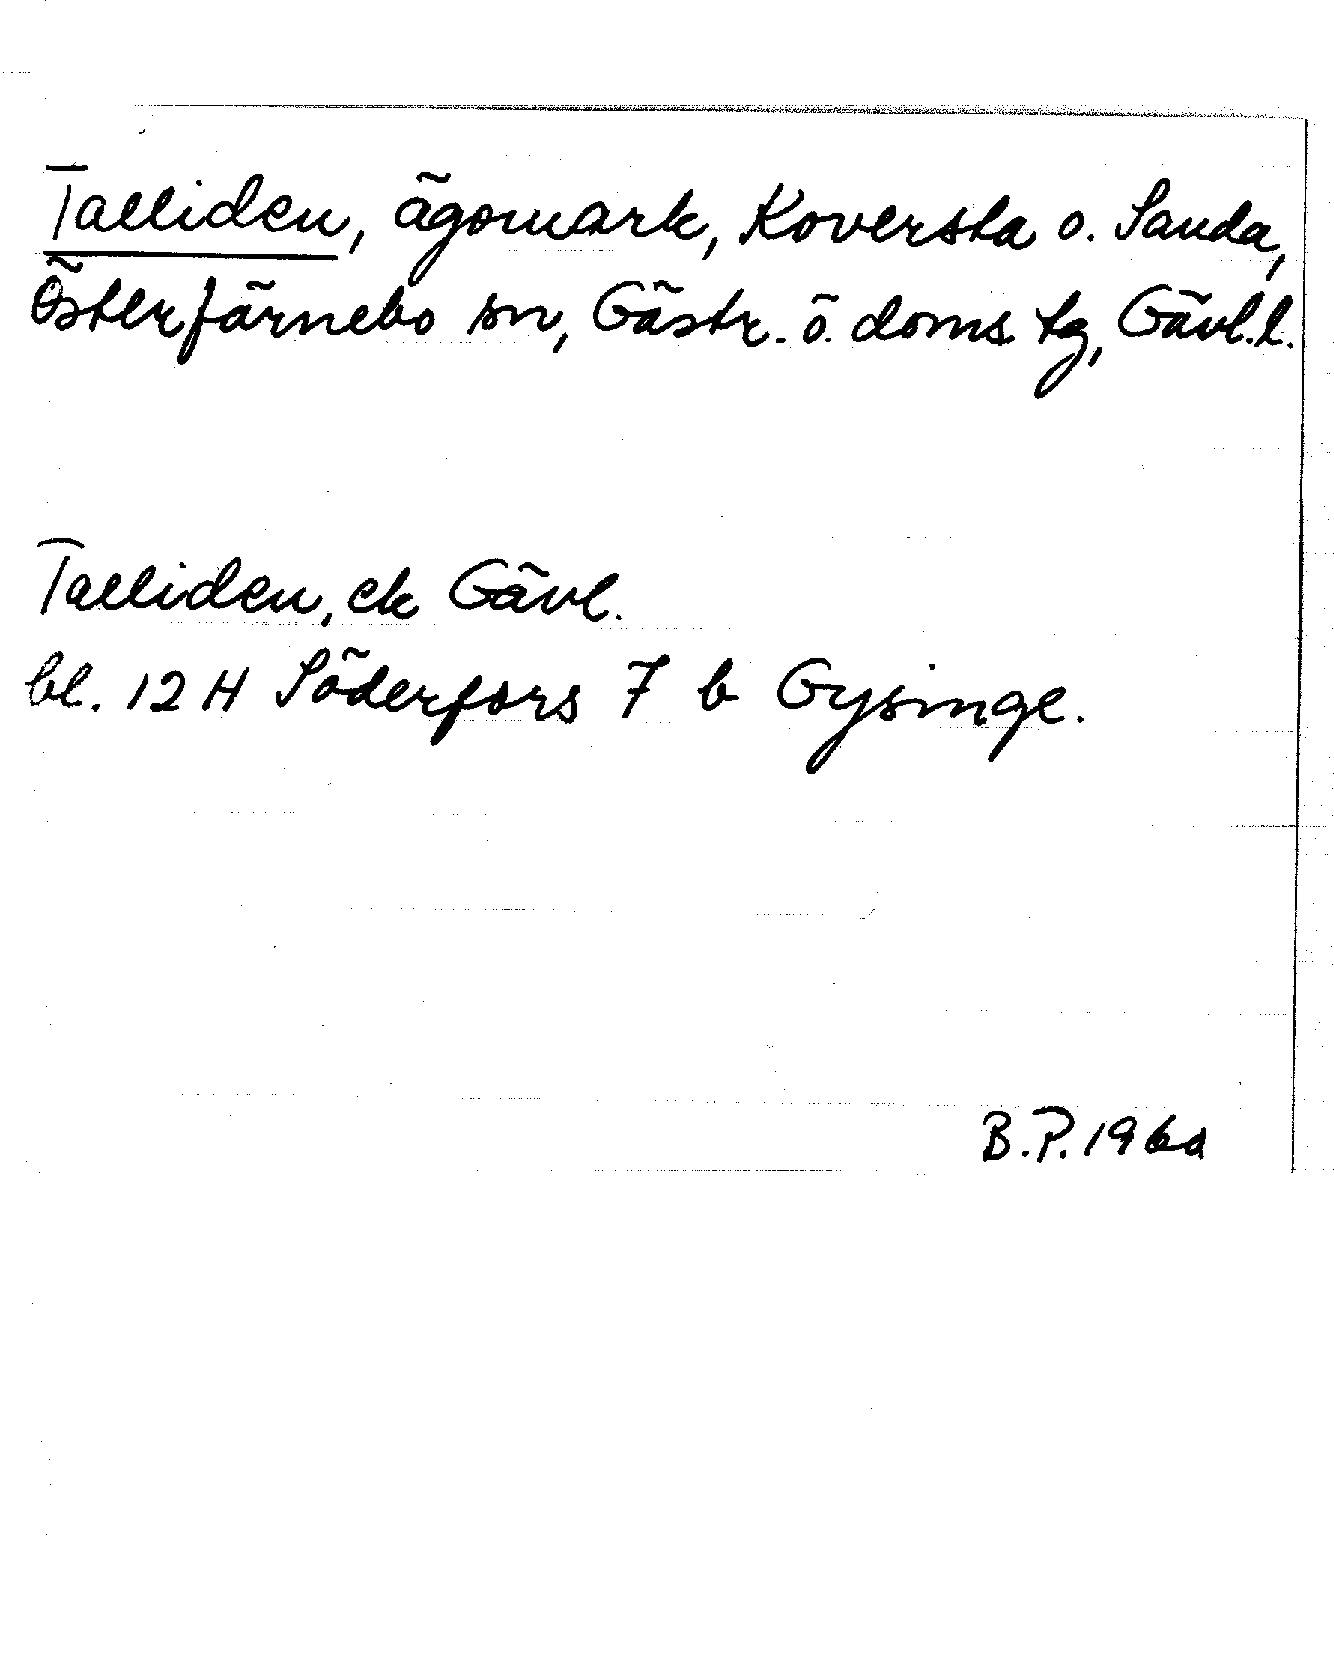 Talliden, ägomark, Koversta o. Sanda,
Österfärnebo sn, Gästr. ö. doms tg, Gävl.l.
Talliden, ek Gävl.
bl. 12 H Söderfors 7 b Gysinge.
B.P. 1960